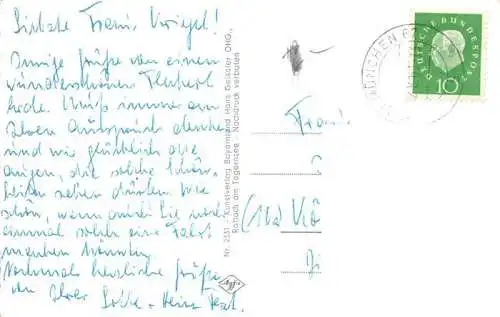 Liebste Frau Kriegel!
Innige Grüße von einem
wunderschönen
Muß immer an
Ihren Ausspruch denken
und wie glücklich die
Augen, die solche Schön-
heiten sehen dürfen. Wie
schön, wenn auch Sie noch
einmal solch eine Fahrt
machen könnten.
Nochmals herzliche Grüße
von Ihrer Lotte
Nr. 2551 - Kunstverlag Bayernland Hans Geißler OHG.,
Rottach am Tegernsee - Nachdruck verboten
Agfa
Frau
(16) Kö
MÜNCHEN
DEUTSCHE BUNDESPOST
10